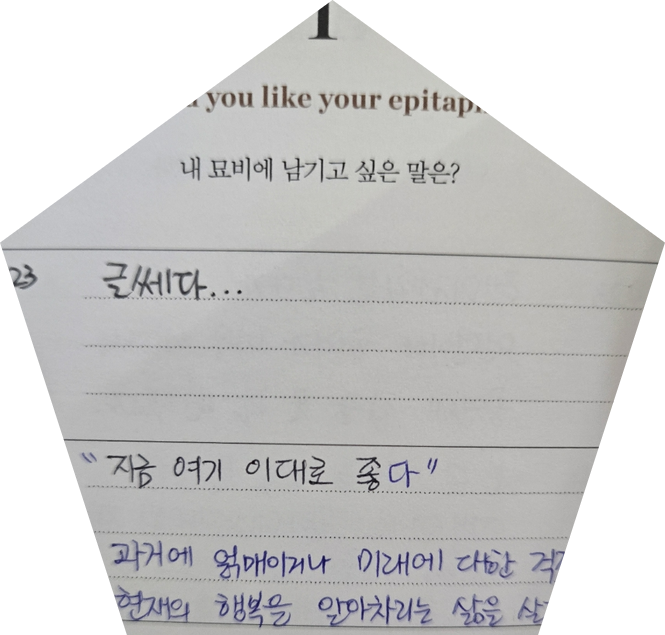 1
you like your
내 묘비에 남기고 싶은 말은?
23 글쎄다...
"지금 여기 이대로 좋다"
과거에 얽매이거나 미래에 대한
현재의 행복을 알아차리는 삶을